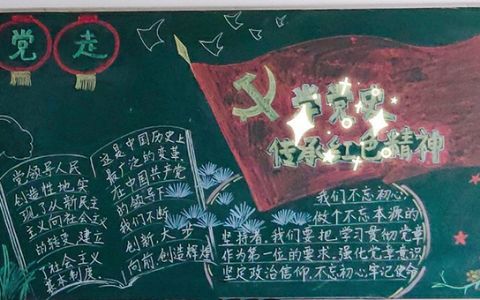 党 走
学党史
传承红色精神
党领导人民
创造性地实
现了从新民主
主义向社会主义
的转变,建立
了社会主义
基本制度.
这是中国历史上
最广泛的变革
在中国共产党
的领导下
我们不断
创新,大步
向前,创造辉煌
我们不忘初心,
做个不忘本源的
坚持者,我们要把学习贯彻党章
作为第一位的要求,强化党章意识
坚定政治信仰,不忘初心牢记使命